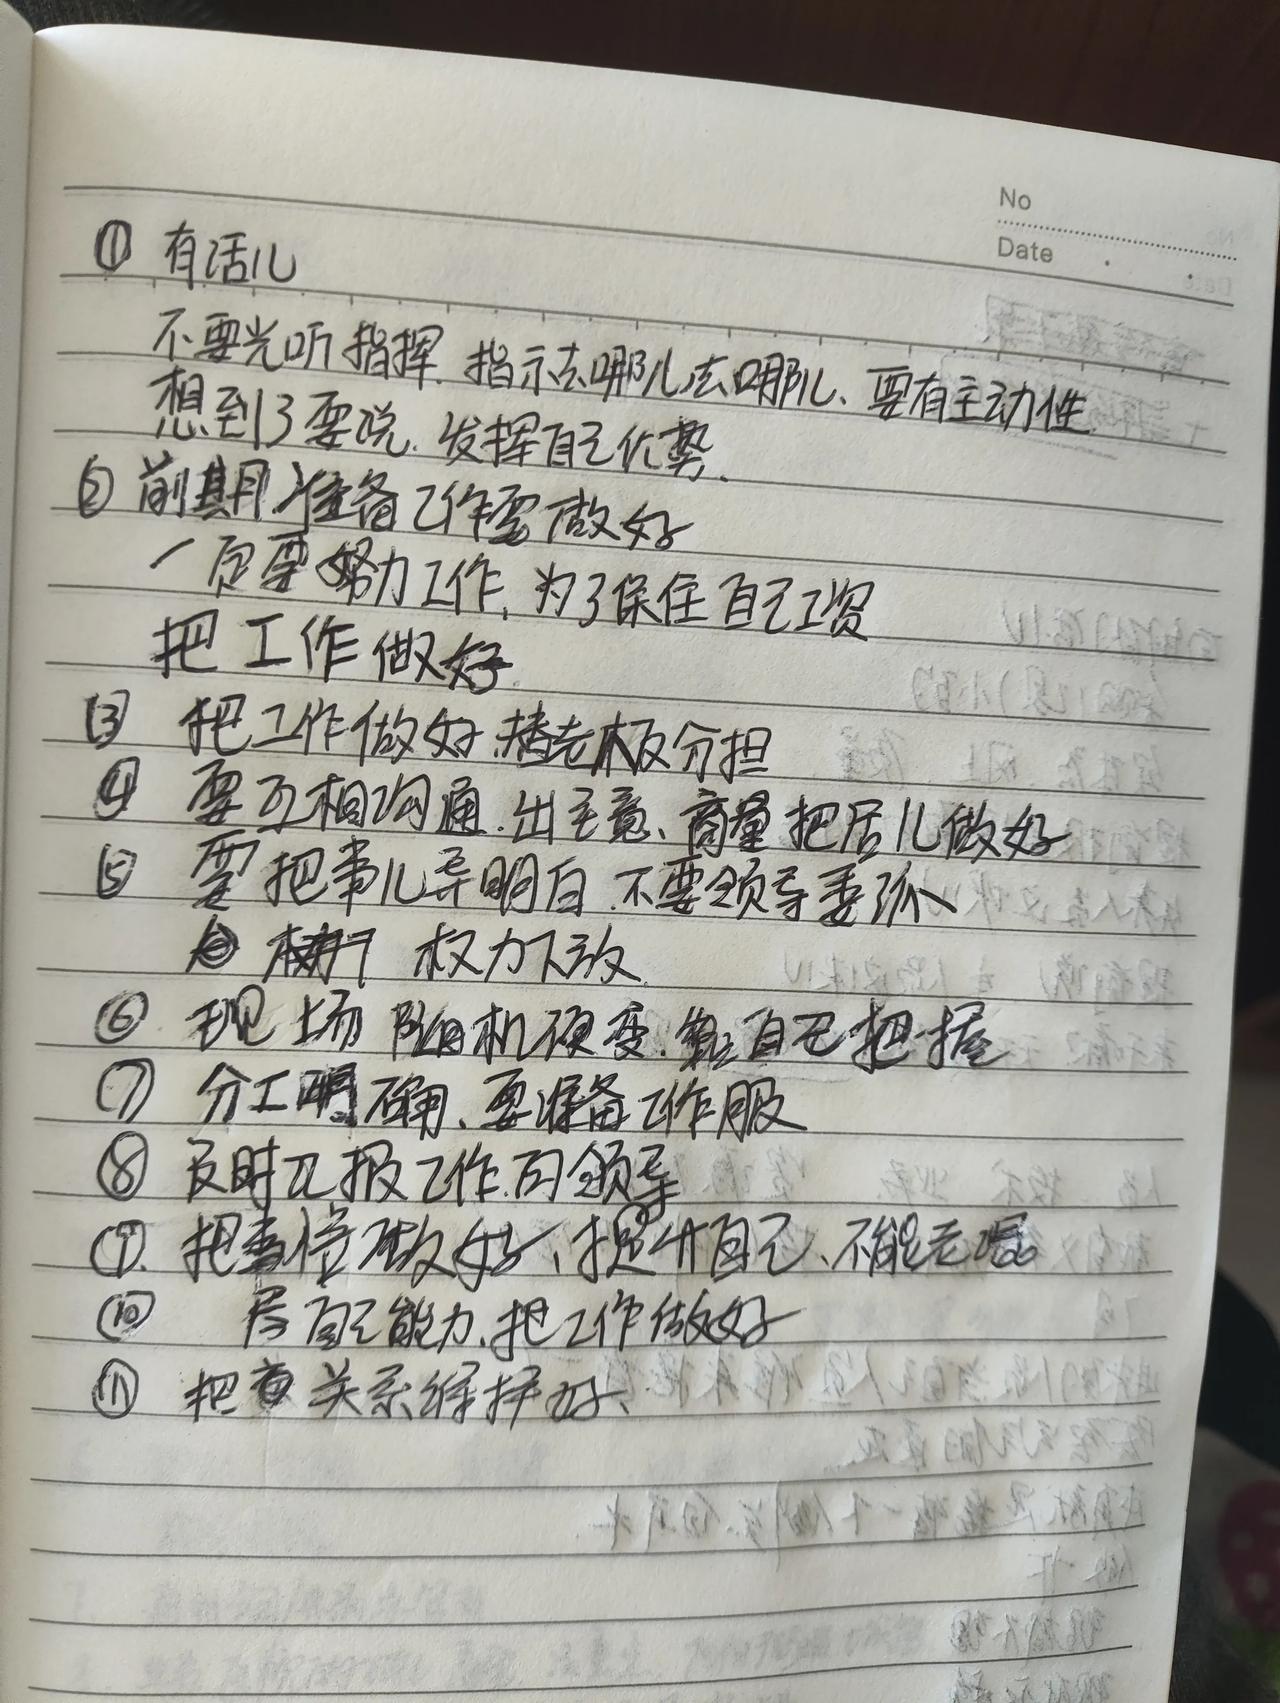 No
Date
① 有活儿
不要光听指挥.指示去哪儿去哪儿、要有主动性.
想到了要说.发挥自己优势.
② 前期准备工作要做好
一定要努力工作,为了保住自己工资
把工作做好.
③ 把工作做好.替老板分担
④ 要互相沟通.出主意、商量把活儿做好
⑤ 要把事儿弄明白.不要领导委派
权力下放
⑥ 现场随机硬变.靠自己把握
⑦ 分工明确、要准备工作服
⑧ 及时汇报工作.向领导
⑨. 把事情做好、提升自己、不能老混
⑩ 尽自己能力.把工作做好
⑪ 把关系维护好、